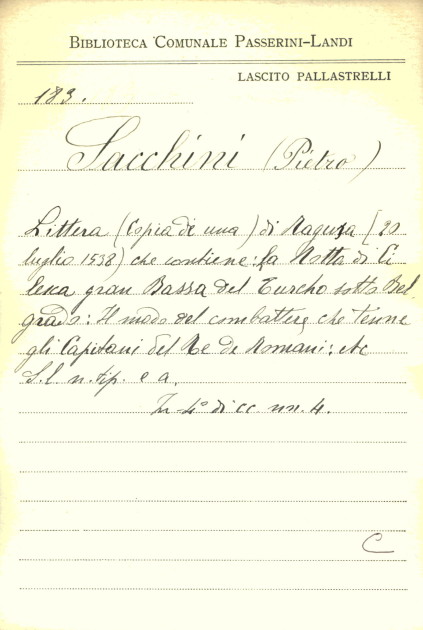 BIBLIOTECA COMUNALE PASSERINI-LANDI
LASCITO PALLASTRELLI
183.
Sacchini (Pietro)
Littera (Copia de una) di Raguxa (20
luglio 1538) che contiene: la Rotta di Ci
lexa gran Bassa del Turcho sotto Bel
grado: Il modo del combattere che tenne
gli Capitani del Re de Romani: etc
S. l. n. tip. e a.
In-4° di cc. nn. 4.
C